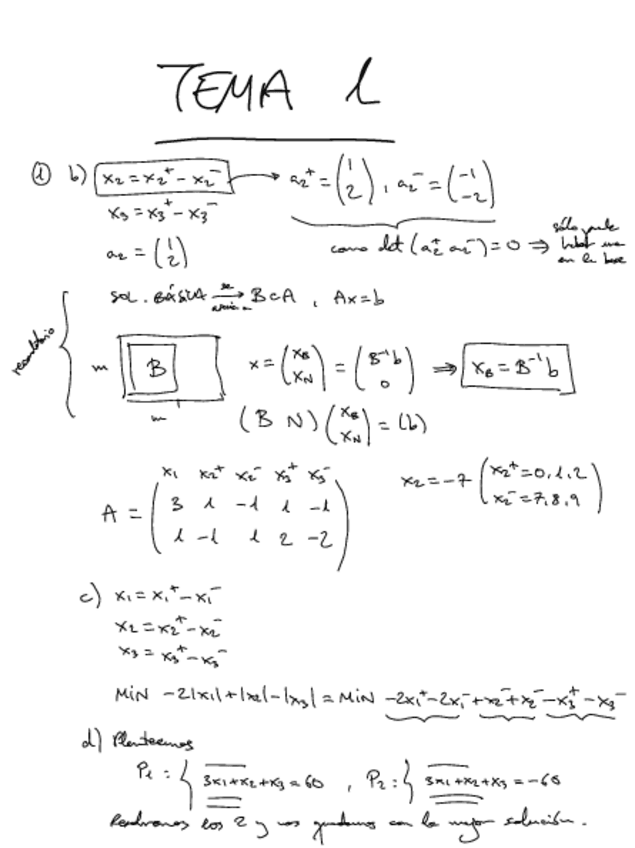 TEMA 1
① b) x₂ = x₂⁺ - x₂⁻ → a₂⁺ = (1 2), a₂⁻ = (-1 -2)
x₃ = x₃⁺ - x₃⁻
como det (a₂⁺ a₂⁻) = 0 ⇒ sólo puede haber una en la base
a₂ = (1 2)
recordatorio
SOL. BÁSICA → B⊂A, Ax = b
m B x = (x_B x_N) = (B⁻¹b 0) ⇒ x_B = B⁻¹b
m (B N) (x_B x_N) = (b)
x₁ x₂⁺ x₂⁻ x₃⁺ x₃⁻ x₂ = -7 (x₂⁺ = 0,1,2 x₂⁻ = 7,8,9)
A = (3 1 -1 1 -1
1 -1 1 2 -2)
c) x₁ = x₁⁺ - x₁⁻
x₂ = x₂⁺ - x₂⁻
x₃ = x₃⁺ - x₃⁻
MIN -2|x₁| + |x₂| - |x₃| = MIN -2x₁⁺ - 2x₁⁻ + x₂⁻ + x₂⁻ - x₃⁺ - x₃⁻
d) Planteamos
P₁ : { 3x₁ + x₂ + x₃ = 60 , P₂ : { 3x₁ + x₂ + x₃ = -60
Resolvemos los 2 y nos quedamos con la mejor solución.